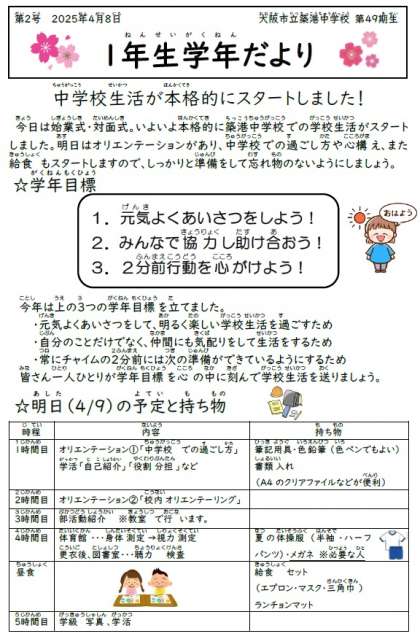 第2号 2025年4月8日 大阪市立築港中学校 第49期生
ねんせいがくねん
1年生学年だより
ちゅうがっこう せいかつ ほんかくてき
中学校生活が本格的にスタートしました!
今日は始業式・対面式。いよいよ本格的に築港中学校での学校生活がスタート
しました。明日はオリエンテーションがあり、中学校での過ごし方や心構え、また
給食もスタートしますので、しっかりと準備をして忘れ物のないようにしましょう。
がくねんもくひょう
☆学年目標
おはよう
げんき
1.元気よくあいさつをしよう!
きょうりょく たす あ
2.みんなで協力し助け合おう!
ふんまえこうどう こころ
3.2分前行動を心がけよう!
今年は上の3つの学年目標を立てました。
・元気よくあいさつをして、明るく楽しい学校生活を過ごすため
・自分のことだけでなく、仲間にも気配りをして生活をするため
・常にチャイムの2分前には次の準備ができているようにするため
皆さん一人ひとりが学年目標を心の中に刻んで学校生活を送りましょう。
あした よてい も もの
☆明日(4/9)の予定と持ち物
時程 内容 持ち物
1時間目 オリエンテーション①「中学校での過ごし方」 筆記用具・色鉛筆(色ペンでもよい)
学活「自己紹介」「役割分担」など 書類入れ
(A4のクリアファイルなどが便利)
2時間目 オリエンテーション②「校内オリエンテーリング」
3時間目 部活動紹介 ※教室で行います。
4時間目 体育館・・・身体測定→視力測定 夏の体操服(半袖・ハーフ
更衣後、図書室・・・聴力検査 パンツ)・メガネ※必要な人
昼食 給食セット
(エプロン・マスク・三角巾)
ランチョンマット
5時間目 学級写真、学活